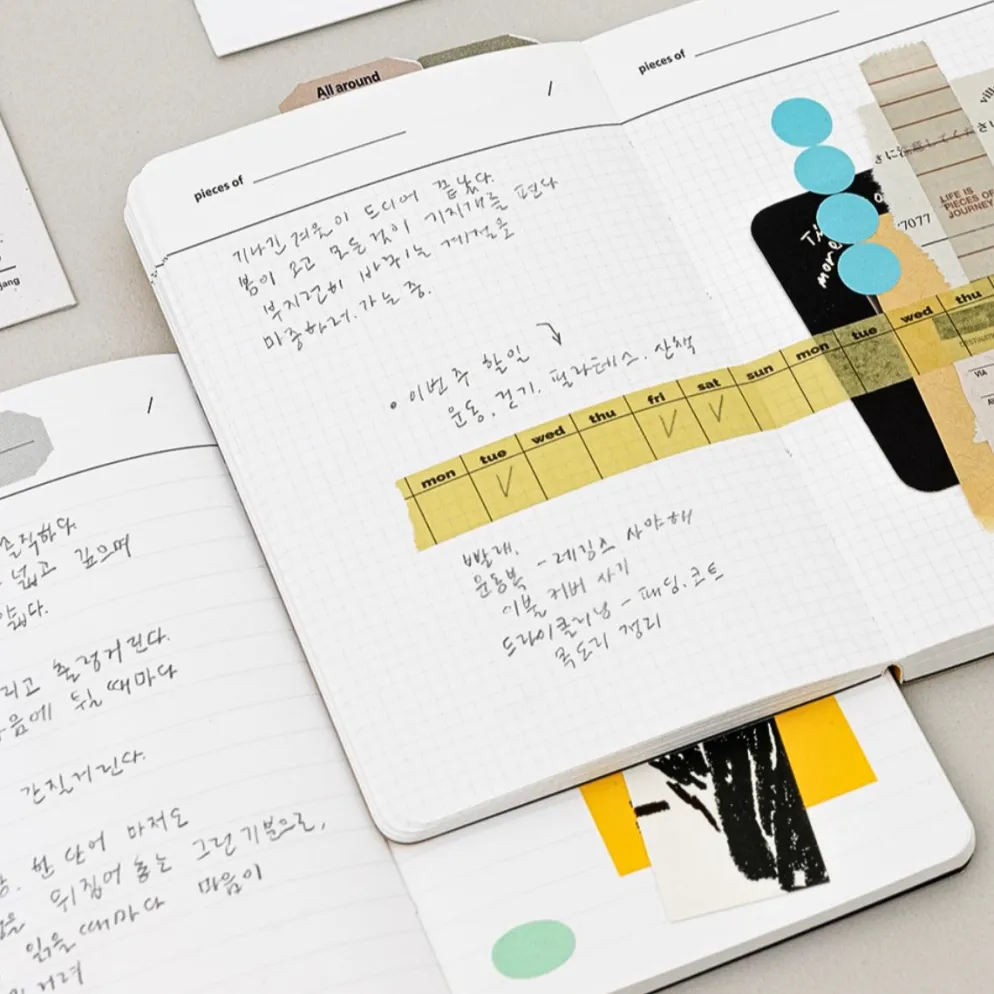 All around
/
pieces of
지나간 겨울이 드디어 끝났다.
봄이 오고 모든것이 기지개를 편다
부지런히 바뀌는 계절을
마중하러.가는 중.
• 이번 주 할일
운동. 걷기. 필라테스. 산책
mon tue wed thu fri sat sun mon tue wed thu
V V V
빨래.
운동복 - 레깅스 사야해
이불 커버 사기
드라이클리닝 - 패딩.코트
목도리 정리
pieces of
LIFE IS
PIECES OF
JOURNEY
7077
more
VIA
/
솔직하다
넓고 깊으며
리고 출렁거린다.
음에 둬질 때마다
간질거린다.
한 단어 마저도
뒤집어 놓는 그런기분으로,
읽을때마다 마음이